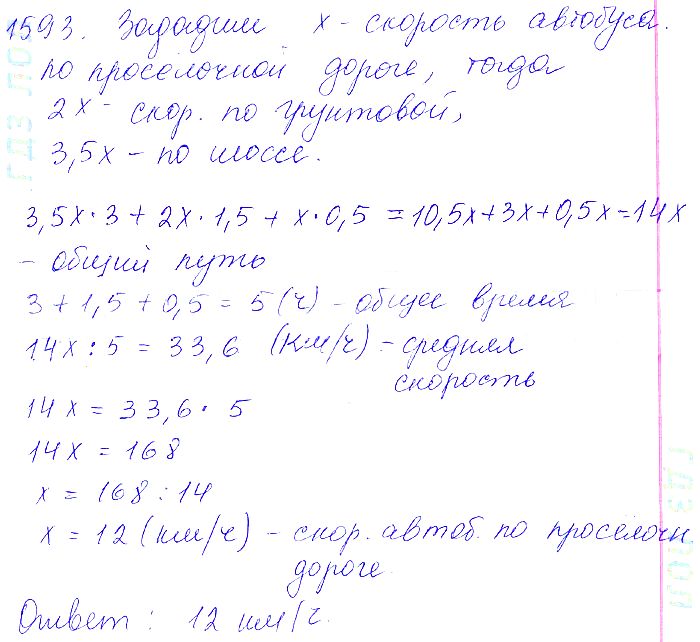 1593. Зададим x - скорость автобуса
по проселочной дороге, тогда
2x - скор. по грунтовой,
3,5x - по шоссе.
3,5x·3 + 2x·1,5 + x·0,5 = 10,5x+3x+0,5x=14x
- общий путь
3 + 1,5 + 0,5 = 5 (ч) - общее время
14x : 5 = 33,6 (км/ч) - средняя
скорость
14x = 33,6 · 5
14x = 168
x = 168 : 14
x = 12 (км/ч) - скор. автоб. по просёлочн.
дороге
Ответ: 12 км/ч.